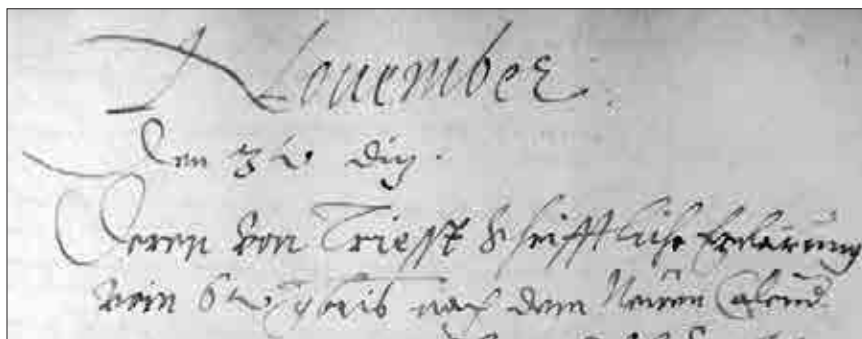 Nouember.
Den 3 diz.
Deren von Triesst Schrifftliche Erclärung
vom 6 nach dem Neuen Calend